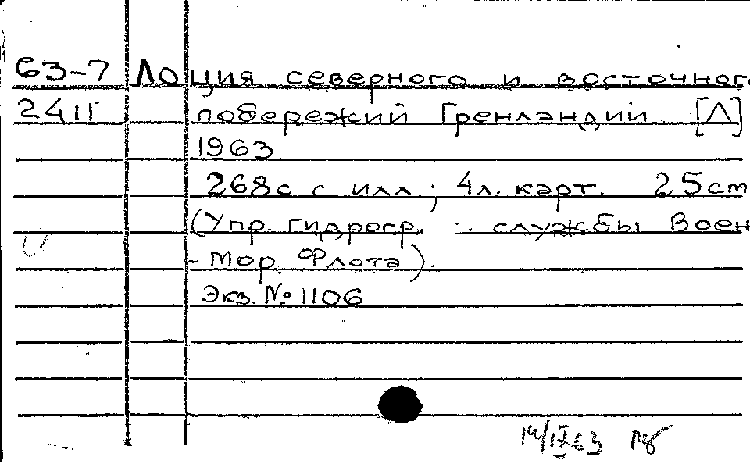 63-7 Лоция северного и восточног
2411 побережий Гренландии. [Л]
1963
268с с илл; 4л. карт. 25cm
(Упр. гидрогр. службы Воен
-Мор. Флота).
Экз. №1106
14/IX63